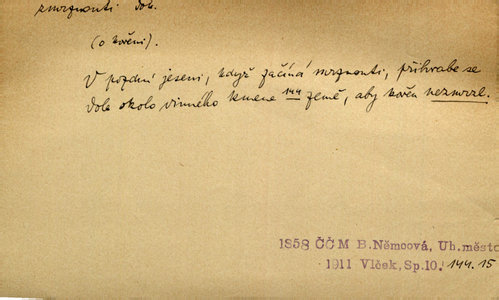 zmrznouti dok.
(o kořeni).
V pozdní jeseni, když začíná mrznouti, přihrabe se
dole okolo vinného kmene 144 země, aby kořen nezmrzl.
1858 ČČM B.Němcová, Uh.město
1911 Vlček, Sp.10. 144.15